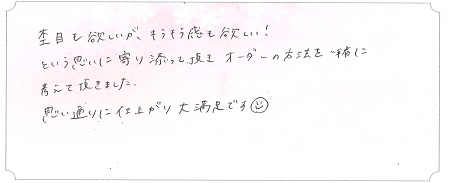 杢目も欲しいが、もうもう感も欲しい！
という思いに寄り添って頂き オーダーの方法を一緒に
考えて頂きました。
思い通りに仕上がり 大満足です